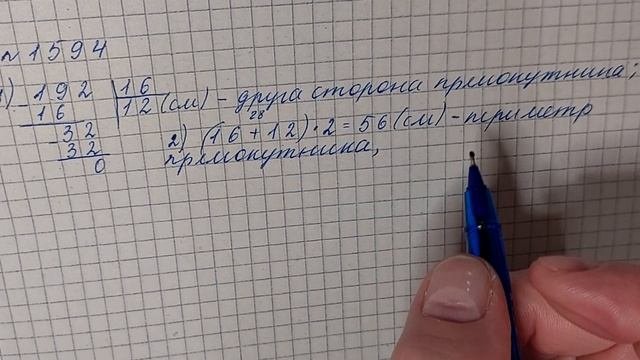 № 1594
1) 192 | 16
16 | 12 (см) - друга сторона прямокутника;
32
32
0
28
2) (16+12)·2=56(см)-периметр
прямокутника,